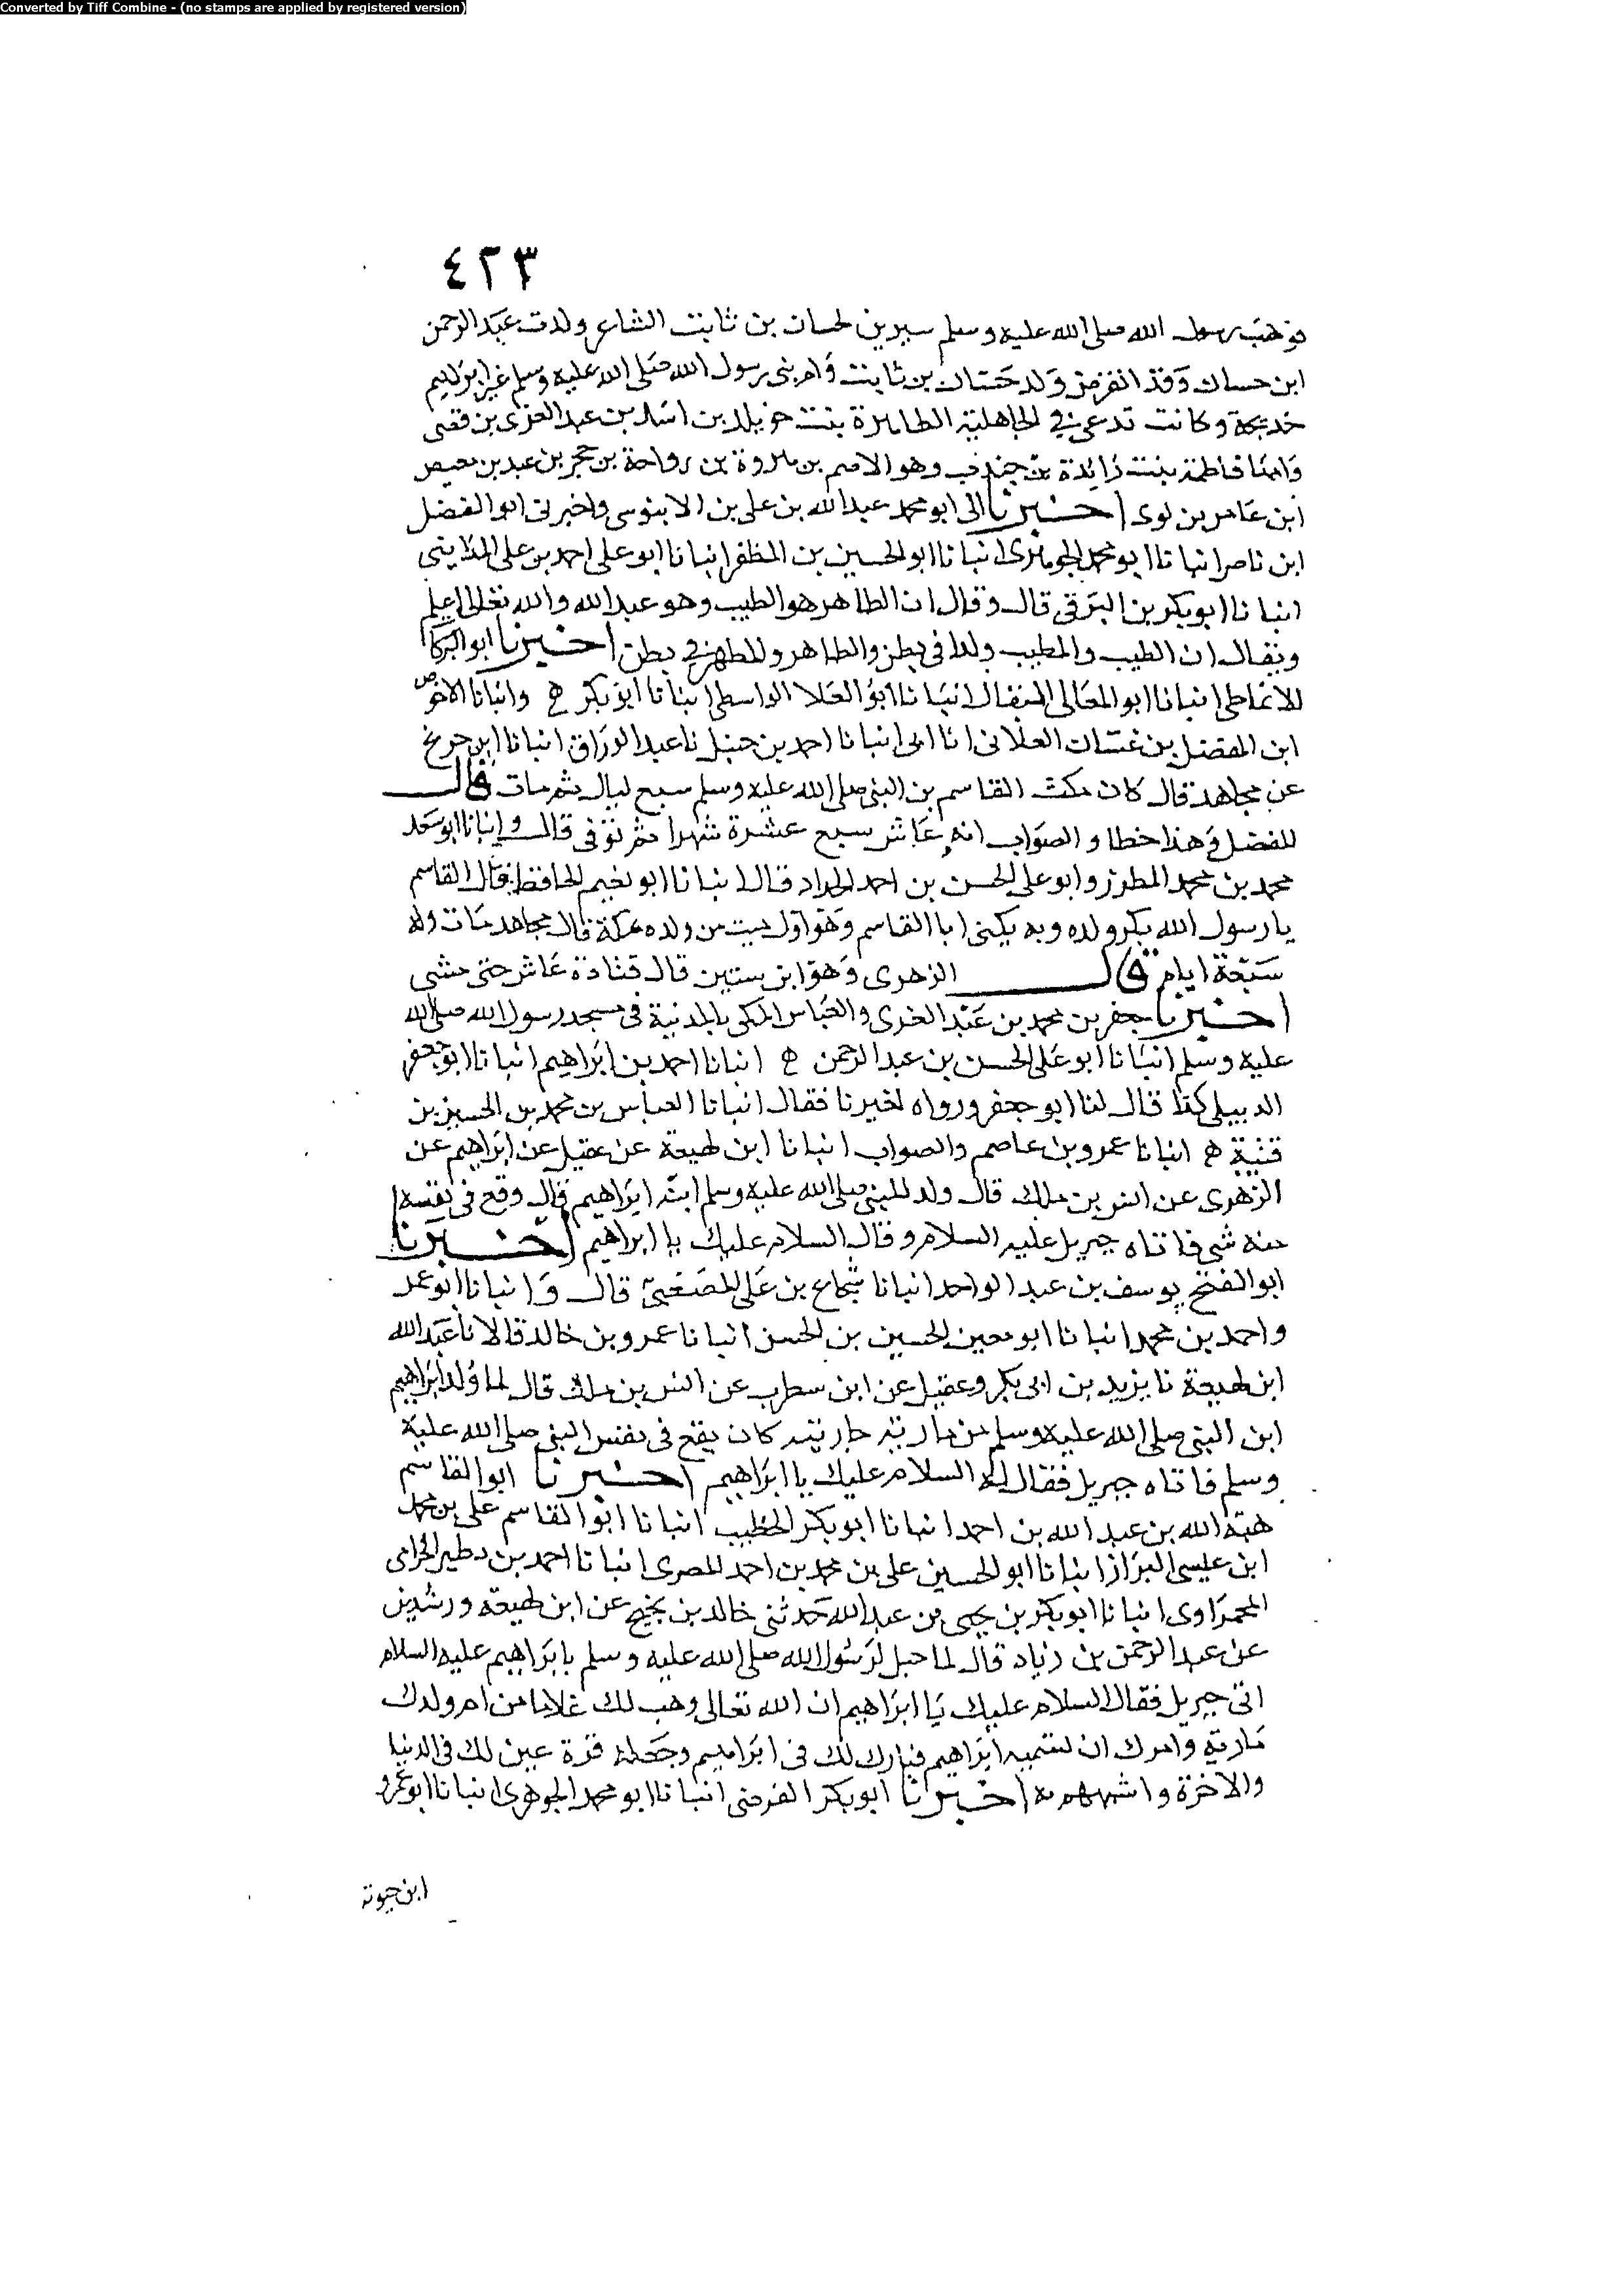 Converted by Tiff Combine - (no stamps are applied by registered version)
٤٢٣
فوهب رسول الله صلى الله عليه وسلم سيرين لحسان بن ثابت الشاعر ولدت عبد الرحمن
ابن حسان وقد انقرض ولد حسان بن ثابت وام بنى رسول الله صلى الله عليه وسلم غير ابرهيم
خديجة وكانت تدعى فى الجاهلية الطاهرة بنت خويلد بن اسد بن عبد العزى بن قصى
وامها فاطمة بنت زائدة بن جندب وهو الاصم بن هروة بن رواحة بن حجر بن عبد بن معيص
ابن عامر بن لوى اخبرنا الى ابو محمد عبد الله بن على بن الابنوسى واخبرنى ابو الفضل
ابن ناصر انبانا ابو محمد الجوهرى انبانا ابو الحسين بن المظفر انبانا ابو على احمد بن على المداينى
انبانا ابو بكر بن البرقى قال وقال ان الطاهر هو الطيب وهو عبد الله والله تعالى اعلم
ويقال ان الطيب والمطيب ولدا فى بطن والطاهر والمطهر فى بطن اخبرنا ابو البركا
الانماطى انبانا ابو المعالى البقال انبانا ابو العلا الواسطى انبانا ابو بكر ح وانبانا الاخوص
ابن المفضل بن غسان العلانى انا ابى انبانا احمد بن حنبل نا عبد الوراق انبانا ابن جريج
عن مجاهد قال كان مكث القاسم بن النبى صلى الله عليه وسلم سبع ليال ثم مات قال
المفضل وهذا خطا والصواب انه عاش سبع عشرة شهرا ثم توفى قال وانبانا ابو سعد
محمد بن محمد المطرز وابو على الحسن بن احمد الحداد قالا انبانا ابو نعيم الحافظ فقال القاسم
يا رسول الله بكر ولده وبه يكنى ابا القاسم وهو اول ميت من ولده بمكة قال مجاهد مات وله
سبعة ايام قال الزهرى وهو ابن سنتين قال قتادة عاش حتى مشى
اخبرنا جعفر بن محمد بن عبد العزى والعباس المكى بالمدنية فى مسجد رسول الله صلى الله
عليه وسلم انبانا ابو على الحسن بن عبد الرحمن ح انبانا احمد بن ابراهيم انبانا ابو جعفر
الديبلى كذا قال لنا ابو جعفر ورواه لغيرنا فقال انبانا العباس بن محمد بن الحسين بن
قتيبة ح انبانا عمرو بن عاصم والصواب انبانا ابن لهيعة عن عقيل عن ابراهيم عن
الزهرى عن انس بن ملك قال ولد للنبى صلى الله عليه وسلم ابنه ابراهيم قال وقع فى نفسه
منه شى فاتاه جبريل عليه السلام وقال السلام عليك يا ابا ابراهيم اخبرنا
ابو الفتح يوسف بن عبد الواحد انبانا شجاع بن على المصقلى قال وانبانا ابو عمر
واحمد بن محمد انبانا ابو معين الحسين بن الحسن انبانا عمرو بن خالد قالا نا عبد الله
ابن لهيعة نا يزيد بن ابى بكر وعقيل عن ابن سطرب عن انس بن ملك قال لما ولد ابراهيم
ابن النبى صلى الله عليه وسلم من مارية جاريته كان يقع فى نفس النبى صلى الله عليه
وسلم فاتاه جبريل فقال له السلام عليك يا ابا ابراهيم اخبرنا ابو القاسم
هبة الله بن عبد الله بن احمد انبانا ابو بكر الخطيب انبانا ابو القاسم على بن محمد
ابن عليسى البزاز انبانا ابو الحسين على بن محمد بن احمد المصرى انبانا احمد بن دطير الحرامى
الحمراوى انبانا ابو بكر بن يحيى بن عبد الله حدثنى خالد بن نجيح عن ابن لهيعة ورشدين
عن عبد الرحمن بن زياد قال لما حبل لرسول الله صلى الله عليه وسلم بابراهيم عليه السلام
اتى جبريل فقال السلام عليك يا ابا ابراهيم ان الله تعالى وهب لك غلاما من ام ولدك
مارية وامرك ان تسميه ابراهيم فبارك لك فى ابراهيم وجعله قرة عين لك فى الدنيا
والاخرة اخبرنا ابو بكر الفرضى انبانا ابو محمد الجوهرى انبانا ابو عمرو
ابن حيوية